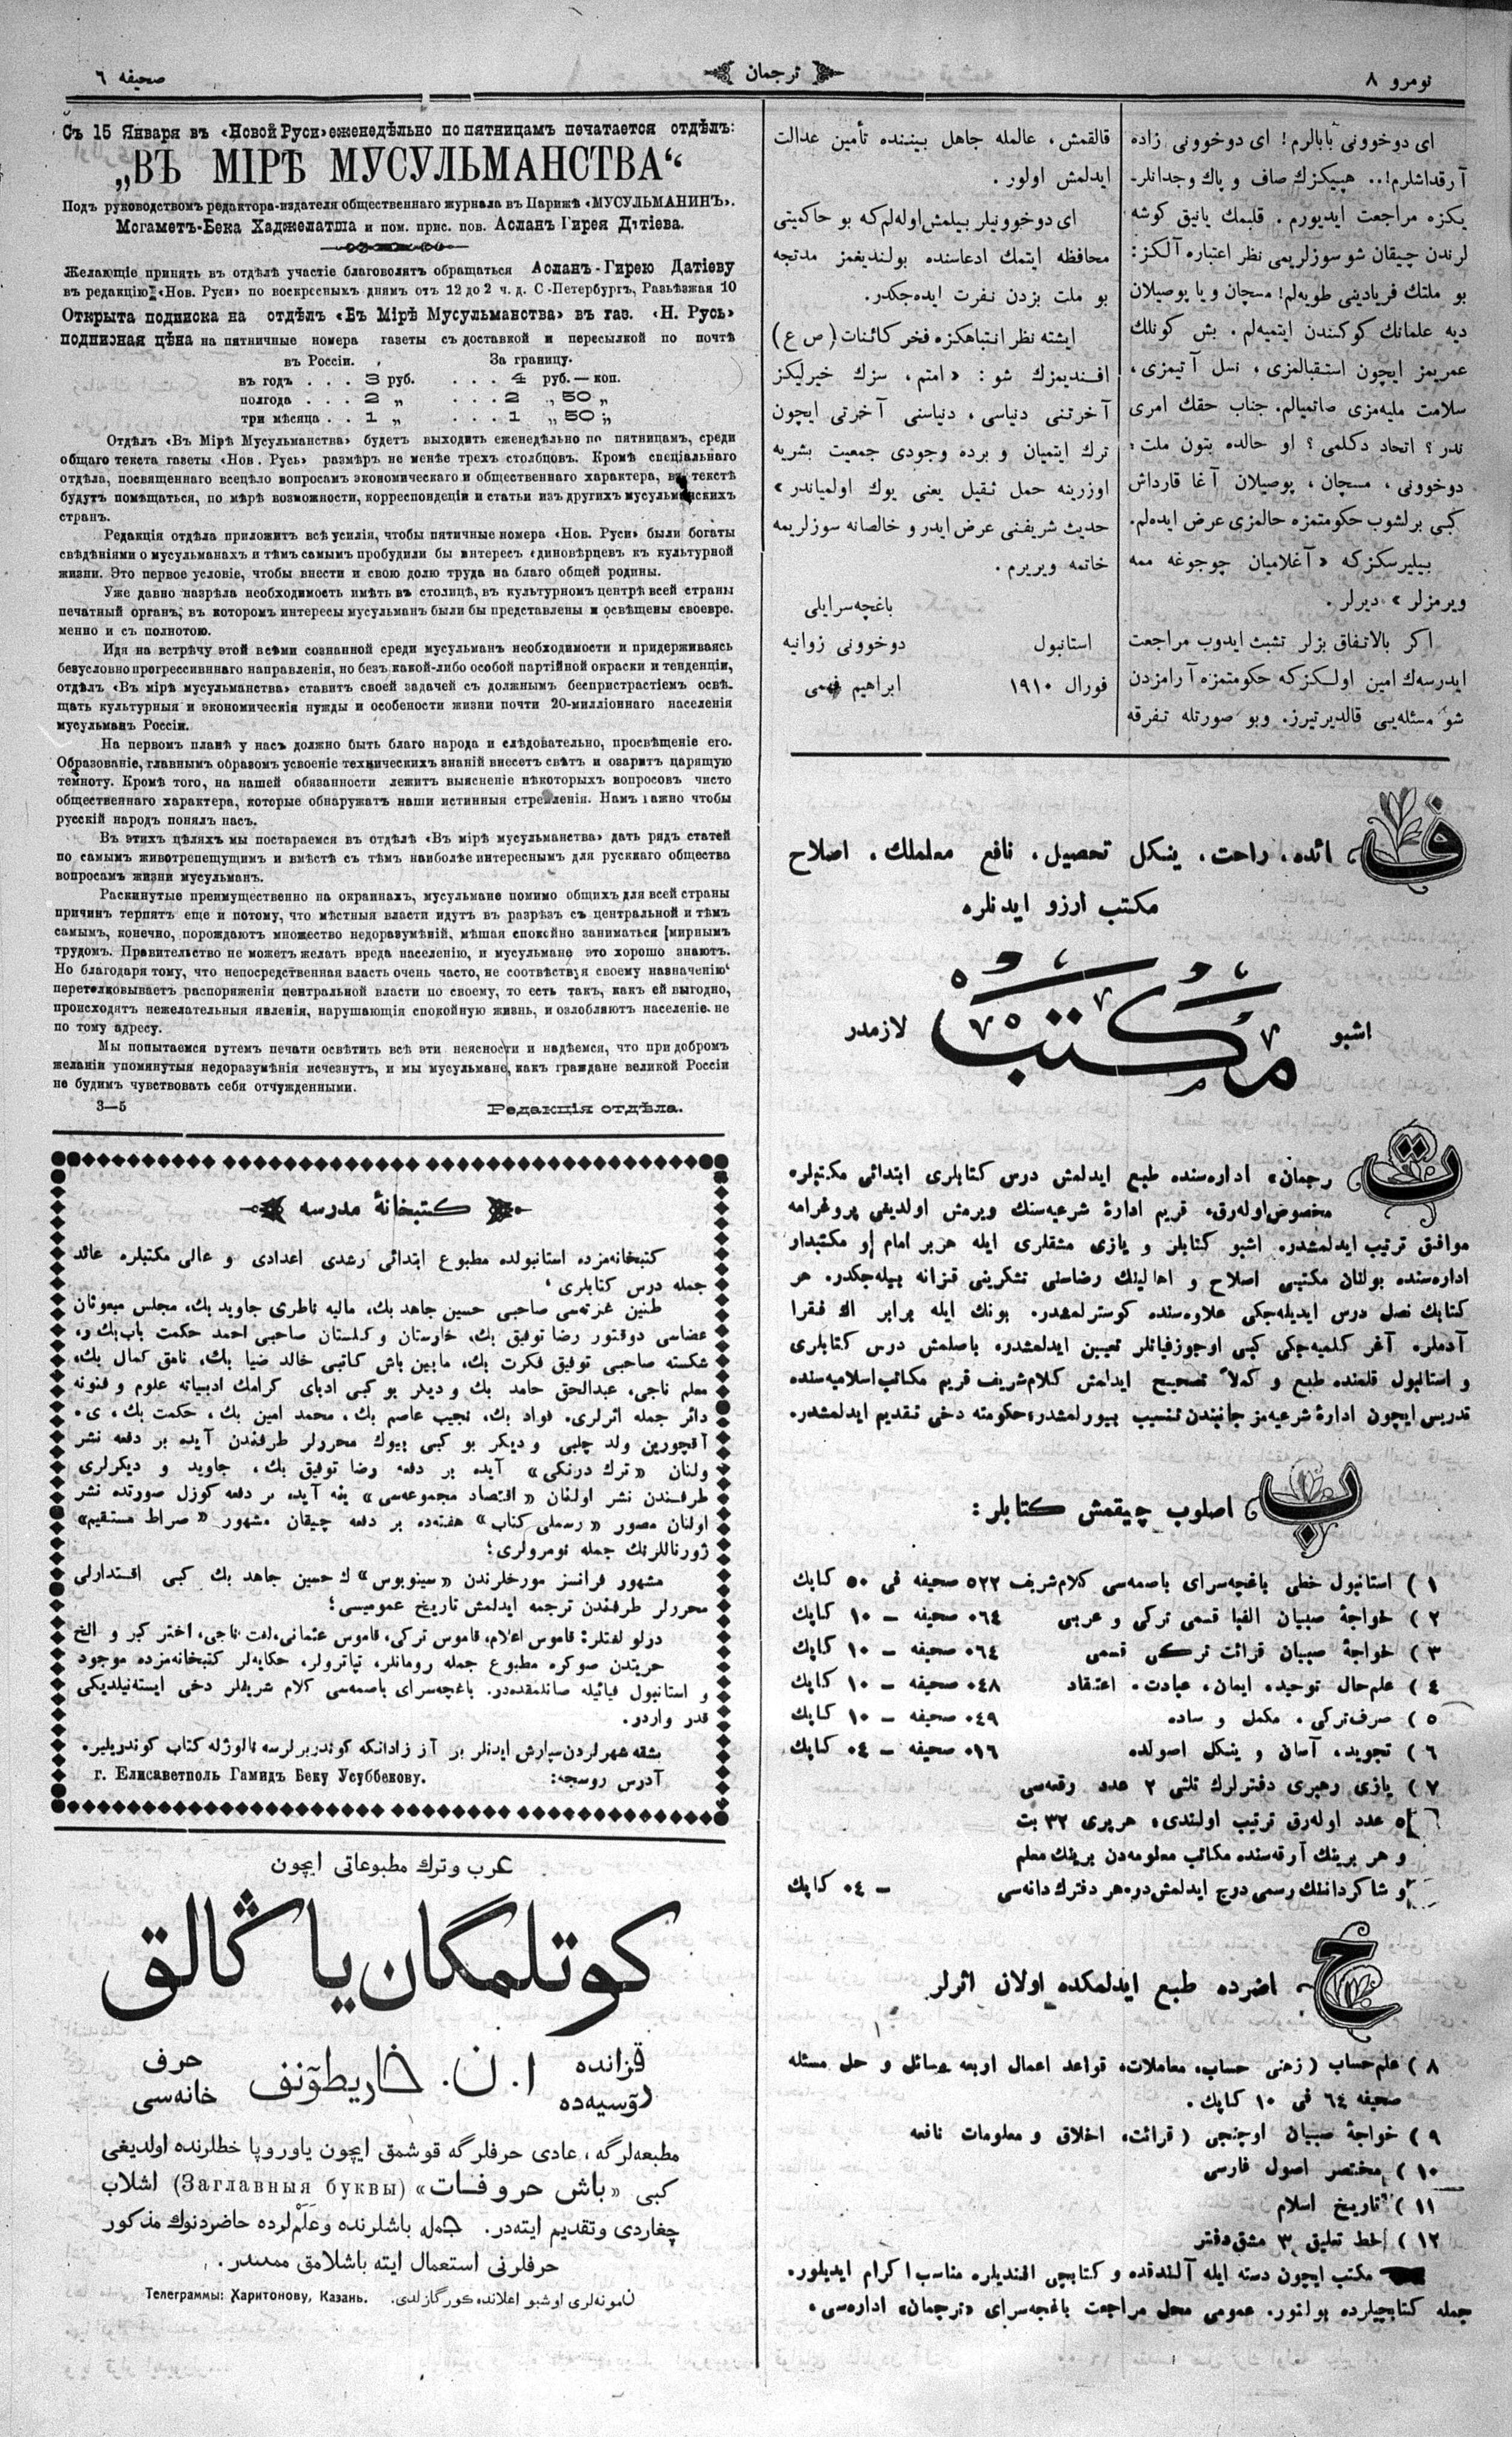 نومرو ٨
ترجمان
صحيفه ٦
اى دوخوونى بابالرم! اى دوخوونى زاده
آرقداشلرم!.. هپيكزك صاف و پاك وجدانلر-
يكزه مراجعت ايديورم. قلبمك يانيق كوشه
لرندن چيقان شو سوزلريمى نظر اعتباره آلكز:
بو ملتك فريادينى طويه‌لم! مسجان و يا پوصيلان
ديه علمانك كوكسندن ايتميه‌لم. بش كونلك
عمريمز ايچون استقبالمزى، نسل آتيمزى،
سلامت مليه‌مزى صاتميالم. جناب حقك امرى
ندر؟ اتحاد دكلمى؟ او حالده بتون ملت:
دوخوونى، مسجان، پوصيلان آغا قارداش
كبى برلشوب حكومتمزه حالمزى عرض ايده‌لم.
بيليرسكزكه «آغلاميان چوجوغه ممه
ويرمزلر» ديرلر.
اكر بالاتفاق بزلر تشبث ايدوب مراجعت
ايدرسه‌ك امين اولكزكه حكومتمزه آرامزدن
شو مسئله‌يى قالديرتيرز. وبو صورتله تفرقه
قالقمش، عالمله جاهل بيننده تأمين عدالت
ايدلمش اولور.
اى دوخوونيلر بيلمش اوله‌لم كه بو حاكميتى
محافظه ايتمك ادعاسنده بولنديغمز مدتجه
بو ملت بزدن نفرت ايده‌جكدر.
ايشته نظر انتباهكزه فخر كائنات (ص ع)
افنديمزك شو: «امتم، سزك خيرليكز
آخرتنى دنياسى، دنياسنى آخرتى ايچون
ترك ايتميان و برده وجودى جمعيت بشريه
اوزرينه حمل ثقيل يعنى يوك اولمياندر»
حديث شريفنى عرض ايدر و خالصانه سوزلريمه
خاتمه ويريرم.
باغچه‌سرايلى
استانبول دوخوونى زوانيه
فورال ١٩١٠ ابراهيم فهمى
فائده، راحت، ينكل تحصيل، نافع معلملك، اصلاح
مكتب ارزو ايدنلره
اشبو مكتب لازمدر
ترجمان» اداره‌سنده طبع ايدلمش درس كتابلرى ابتدائى مكتبلره
مخصوص اوله‌رق، قريم ادارهٔ شرعيه‌سنك ويرمش اولديغى پروغرامه
موافق ترتيب ايدلمشدر. اشبو كتابلر و يازى مشقلرى ايله هربر امام او مكتبدار
اداره‌سنده بولنان مكتبى اصلاح و اهالينك رضاسنى تشكرينى قزانه بيله‌جكدر. هر
كتابك نصل درس ايديله‌جكى علاوه‌سنده كوسترلمشدر. بونك ايله برابر اك فقرا
آدملره آغر كلميه‌جكى كبى اوجوز فياتلر تعيين ايدلمشدر. باصلمش درس كتابلرى
و استانبول قلمنده طبع و كملاً تصحيح ايدلمش كلام شريف قريم مكاتب اسلاميه‌سنده
تدريس ايچون ادارهٔ شرعيه‌مز جانبندن تنسيب بيورلمشدر، حكومته دخى تقديم ايدلمشدر.
باصلوب چيقمش كتابلر:
١) استانبول خطى باغچه‌سراى باصمه‌سى كلام شريف ٥٢٢ صحيفه فى ٥٠ كاپك
٢) خواجهٔ صبيان الفبا قسمى تركى و عربى ٠٦٤ صحيفه – ١٠ كاپك
٣) خواجهٔ صبيان قرائت تركى قسمى ٠٦٤ صحيفه – ١٠ كاپك
٤) علم حال توحيد، ايمان، عبادت، اعتقاد ٠٤٨ صحيفه – ١٠ كاپك
٥) صرف تركى، مكمل و ساده ٠٤٩ صحيفه – ١٠ كاپك
٦) تجويد، آسان و ينكل اصولده ٠١٦ صحيفه – ٠٤ كاپك
٧) يازى رهبرى دفترلرك ثلثى ٢ عدد رقعه‌سى
٥ عدد اوله‌رق ترتيب اولندى، هربرى ٣٢ بت
و هر برينك آرقه‌سنده مكاتب معلومه‌دن برينك معلم
و شاكرداننك رسمى درج ايدلمش‌در، هر دفترك دانه‌سى – ٠٤ كاپك
حاضرده طبع ايدلمكده اولان اثرلر
٨) علم حساب (زهنى حساب، معاملات، قواعد اعمال اربعه مسائل و حل مسئله
صحيفه ٦٤ فى ١٠ كاپك.
٩) خواجهٔ صبيان اوچنجى (قرائت، اخلاق و معلومات نافعه
١٠) مختصر اصول فارسى
١١) تاريخ اسلام
١٢) خط تعليق ٣ مشق دفتر
مكتب ايچون دسته ايله آلندقده و كتابچى افنديلره مناسب اكرام ايديلور.
جمله كتابچيلرده بولنور. عمومى محل مراجعت باغچه‌سراى «ترجمان» اداره‌سى.
Съ 15 Января въ «Новой Руси» еженедѣльно по пятницамъ печатается отдѣлъ:
„ВЪ МІРѢ МУСУЛЬМАНСТВА“
Подъ руководствомъ редактора-издателя общественнаго журнала въ Парижѣ «МУСУЛЬМАНИНЪ».
Могаметъ-Бека Хаджелатша и пом. прис. пов. Асланъ Гирея Датіева.
Желающіе принять въ отдѣлѣ участіе благоволятъ обращаться Асланъ-Гирею Датіеву
въ редакцію «Нов. Руси» по воскреснымъ днямъ отъ 12 до 2 ч. д. С-Петербургъ, Разъѣзжая 10
Открыта подписка на отдѣлъ «Въ Мірѣ Мусульманства» въ газ. «Н. Русь»
подписная цѣна на пятничные номера газеты съ доставкой и пересылкой по почтѣ
въ Россіи. За границу.
въ годъ . . . 3 руб. . . . 4 руб. — коп.
полгода . . . 2 „ . . . 2 „ 50 „
три мѣсяца . . 1 „ . . . 1 „ 50 „
Отдѣлъ «Въ Мірѣ Мусульманства» будетъ выходить еженедѣльно по пятницамъ, среди
общаго текста газеты «Нов. Русь» размѣръ не менѣе трехъ столбцовъ. Кромѣ спеціальнаго
отдѣла, посвященнаго всецѣло вопросамъ экономическаго и общественнаго характера, въ текстѣ
будутъ помѣщаться, по мѣрѣ возможности, корреспонденціи и статьи изъ другихъ мусульманскихъ
странъ.
Редакція отдѣла приложитъ всѣ усилія, чтобы пятничные номера «Нов. Руси» были богаты
свѣдѣніями о мусульманахъ и тѣмъ самымъ пробудили бы интересъ единовѣрцевъ къ культурной
жизни. Это первое условіе, чтобы внести и свою долю труда на благо общей родины.
Уже давно назрѣла необходимость имѣть въ столицѣ, въ культурномъ центрѣ всей страны
печатный органъ, въ которомъ интересы мусульманъ были бы представлены и освѣщены своевре.
менно и съ полнотою.
Идя на встрѣчу этой всѣми сознанной среди мусульманъ необходимости и придерживаясь
безусловно прогрессивннаго направленія, но безъ какой-либо особой партійной окраски и тенденціи,
отдѣлъ «Въ мірѣ мусульманства» ставитъ своей задачей съ должнымъ безпристрастіемъ освѣ-
щать культурныя и экономическія нужды и особености жизни почти 20-милліоннаго населенія
мусульманъ Россіи.
На первомъ планѣ у насъ должно быть благо народа и слѣдовательно, просвѣщеніе его.
Образованіе, главнымъ образомъ усвоеніе техническихъ знаній внесетъ свѣтъ и озаритъ царящую
темноту. Кромѣ того, на нашей обязанности лежитъ выясненіе нѣкоторыхъ вопросовъ чисто
общественнаго характера, которые обнаружатъ наши истинныя стремленія. Намъ важно чтобы
русскій народъ понялъ насъ.
Въ этихъ цѣляхъ мы постараемся въ отдѣлѣ «Въ мірѣ мусульманства» дать рядъ статей
по самымъ животрепещущимъ и вмѣстѣ съ тѣмъ наиболѣе интереснымъ для рускнаго общества
вопросамъ жизни мусульманъ.
Раскинутые преимущественно на окраинахъ, мусульмане помимо общихъ для всей страны
причинъ терпятъ еще и потому, что мѣстныя власти идутъ въ разрѣзъ съ центральной и тѣмъ
самымъ, конечно, порождаютъ множество недоразумѣній, мѣшая спокойно заниматься мирнымъ
трудомъ. Правительство не можетъ желать вреда населенію, и мусульмане это хорошо знаютъ.
Но благодаря тому, что непосредственная власть очень часто, не соотвѣствуя своему назначенію
перетолковываетъ распоряженія центральной власти по своему, то есть такъ, какъ ей выгодно,
происходятъ нежелательныя явленія, нарушающія спокойную жизнь, и озлобляютъ населеніе. не
по тому адресу.
Мы попытаемся путемъ печати освѣтить всѣ эти неясности и надѣемся, что при добромъ
желаніи упомянутыя недоразумѣнія исчезнутъ, и мы мусульмане, какъ граждане великой Россіи
не будимъ чувствовать себя отчужденными.
3—5 Редакція отдѣла.
كتبخانهٔ مدرسه
كتبخانه‌مزده استانبولده مطبوع ابتدائى رشدى اعدادى و عالى مكتبلره عائد
جمله درس كتابلرى،
طنين غزته‌سى صاحبى حسين جاهد بك، ماليه ناظرى جاويد بك، مجلس مبعوثان
عضاسى دوقتور رضا توفيق بك، خارستان و گلستان صاحبى احمد حكمت بك،
شكسته صاحبى توفيق فكرت بك، مابين باش كاتبى خالد ضيا بك، نامق كمال بك،
معلم ناجى، عبدالحق حامد بك و ديگر بو كبى ادباى كرامك ادبياته علوم و فنونه
دائر جمله اثرلرى. فواد بك، نجيب عاصم بك، محمد امين بك، حكمت بك، ى.
آقچورين ولد چلبى و ديكر بو كبى بيوك محررلر طرفندن آيده بر دفعه نشر
ولنان «ترك درنكى» آيده بر دفعه رضا توفيق بك، جاويد و ديكرلرى
طرفندن نشر اولنان «اقتصاد مجموعه‌سى» ينه آيده بر دفعه كوزل صورتده نشر
اولنان مصور «رسملى كتاب» هفته‌ده بر دفعه چيقان مشهور «صراط مستقيم»
ژورناللرنك جمله نومرولرى؛
مشهور فرانسز مورخلرندن «سينوبوس»ك حسين جاهد بك كبى اقتدارلى
محررلر طرفندن ترجمه ايدلمش تاريخ عموميسى؛
درلو لغتلر: قاموس اعلام، قاموس تركى، قاموس عثمانى، لغت ناجى، اختر كبر و الخ
حريتدن صوكره مطبوع جمله رومانلر، تياترولر، حكايه‌لر كتبخانه‌مزده موجود
و استانبول فياتيله صاتلمقده‌در. باغچه‌سراى باصمه‌سى كلام شريفلر دخى ايسته‌نيلديكى
قدر واردر.
بشقه شهرلردن سپارش ايدنلر بر آز زادانكه كوندريرلرسه نالوژله كتاب كوندريلير.
آدرس روسجه: г. Елисаветполь Гамидъ Беку Усуббекову.
عرب و ترك مطبوعاتى ايچون
كوتلمگان ياڭالق
قزانده ا. ن. خاريطونف حرف
روسيه‌ده خانه‌سى
مطبعه‌لرگه، عادى حرفلرگه قوشمق ايچون ياوروپا خطلرنده اولديغى
كبى «باش حروفات» (Заглавныя буквы) اشلاب
چغاردى و تقديم ايته‌در. جمله باشلرنده و علم‌لرده حاضردنوك مذكور
حرفلرنى استعمال ايته باشلامق ممكندر.
نمونه‌لرى اوشبو اعلانده كورگازلدى. Телеграммы: Харитонову, Казань.